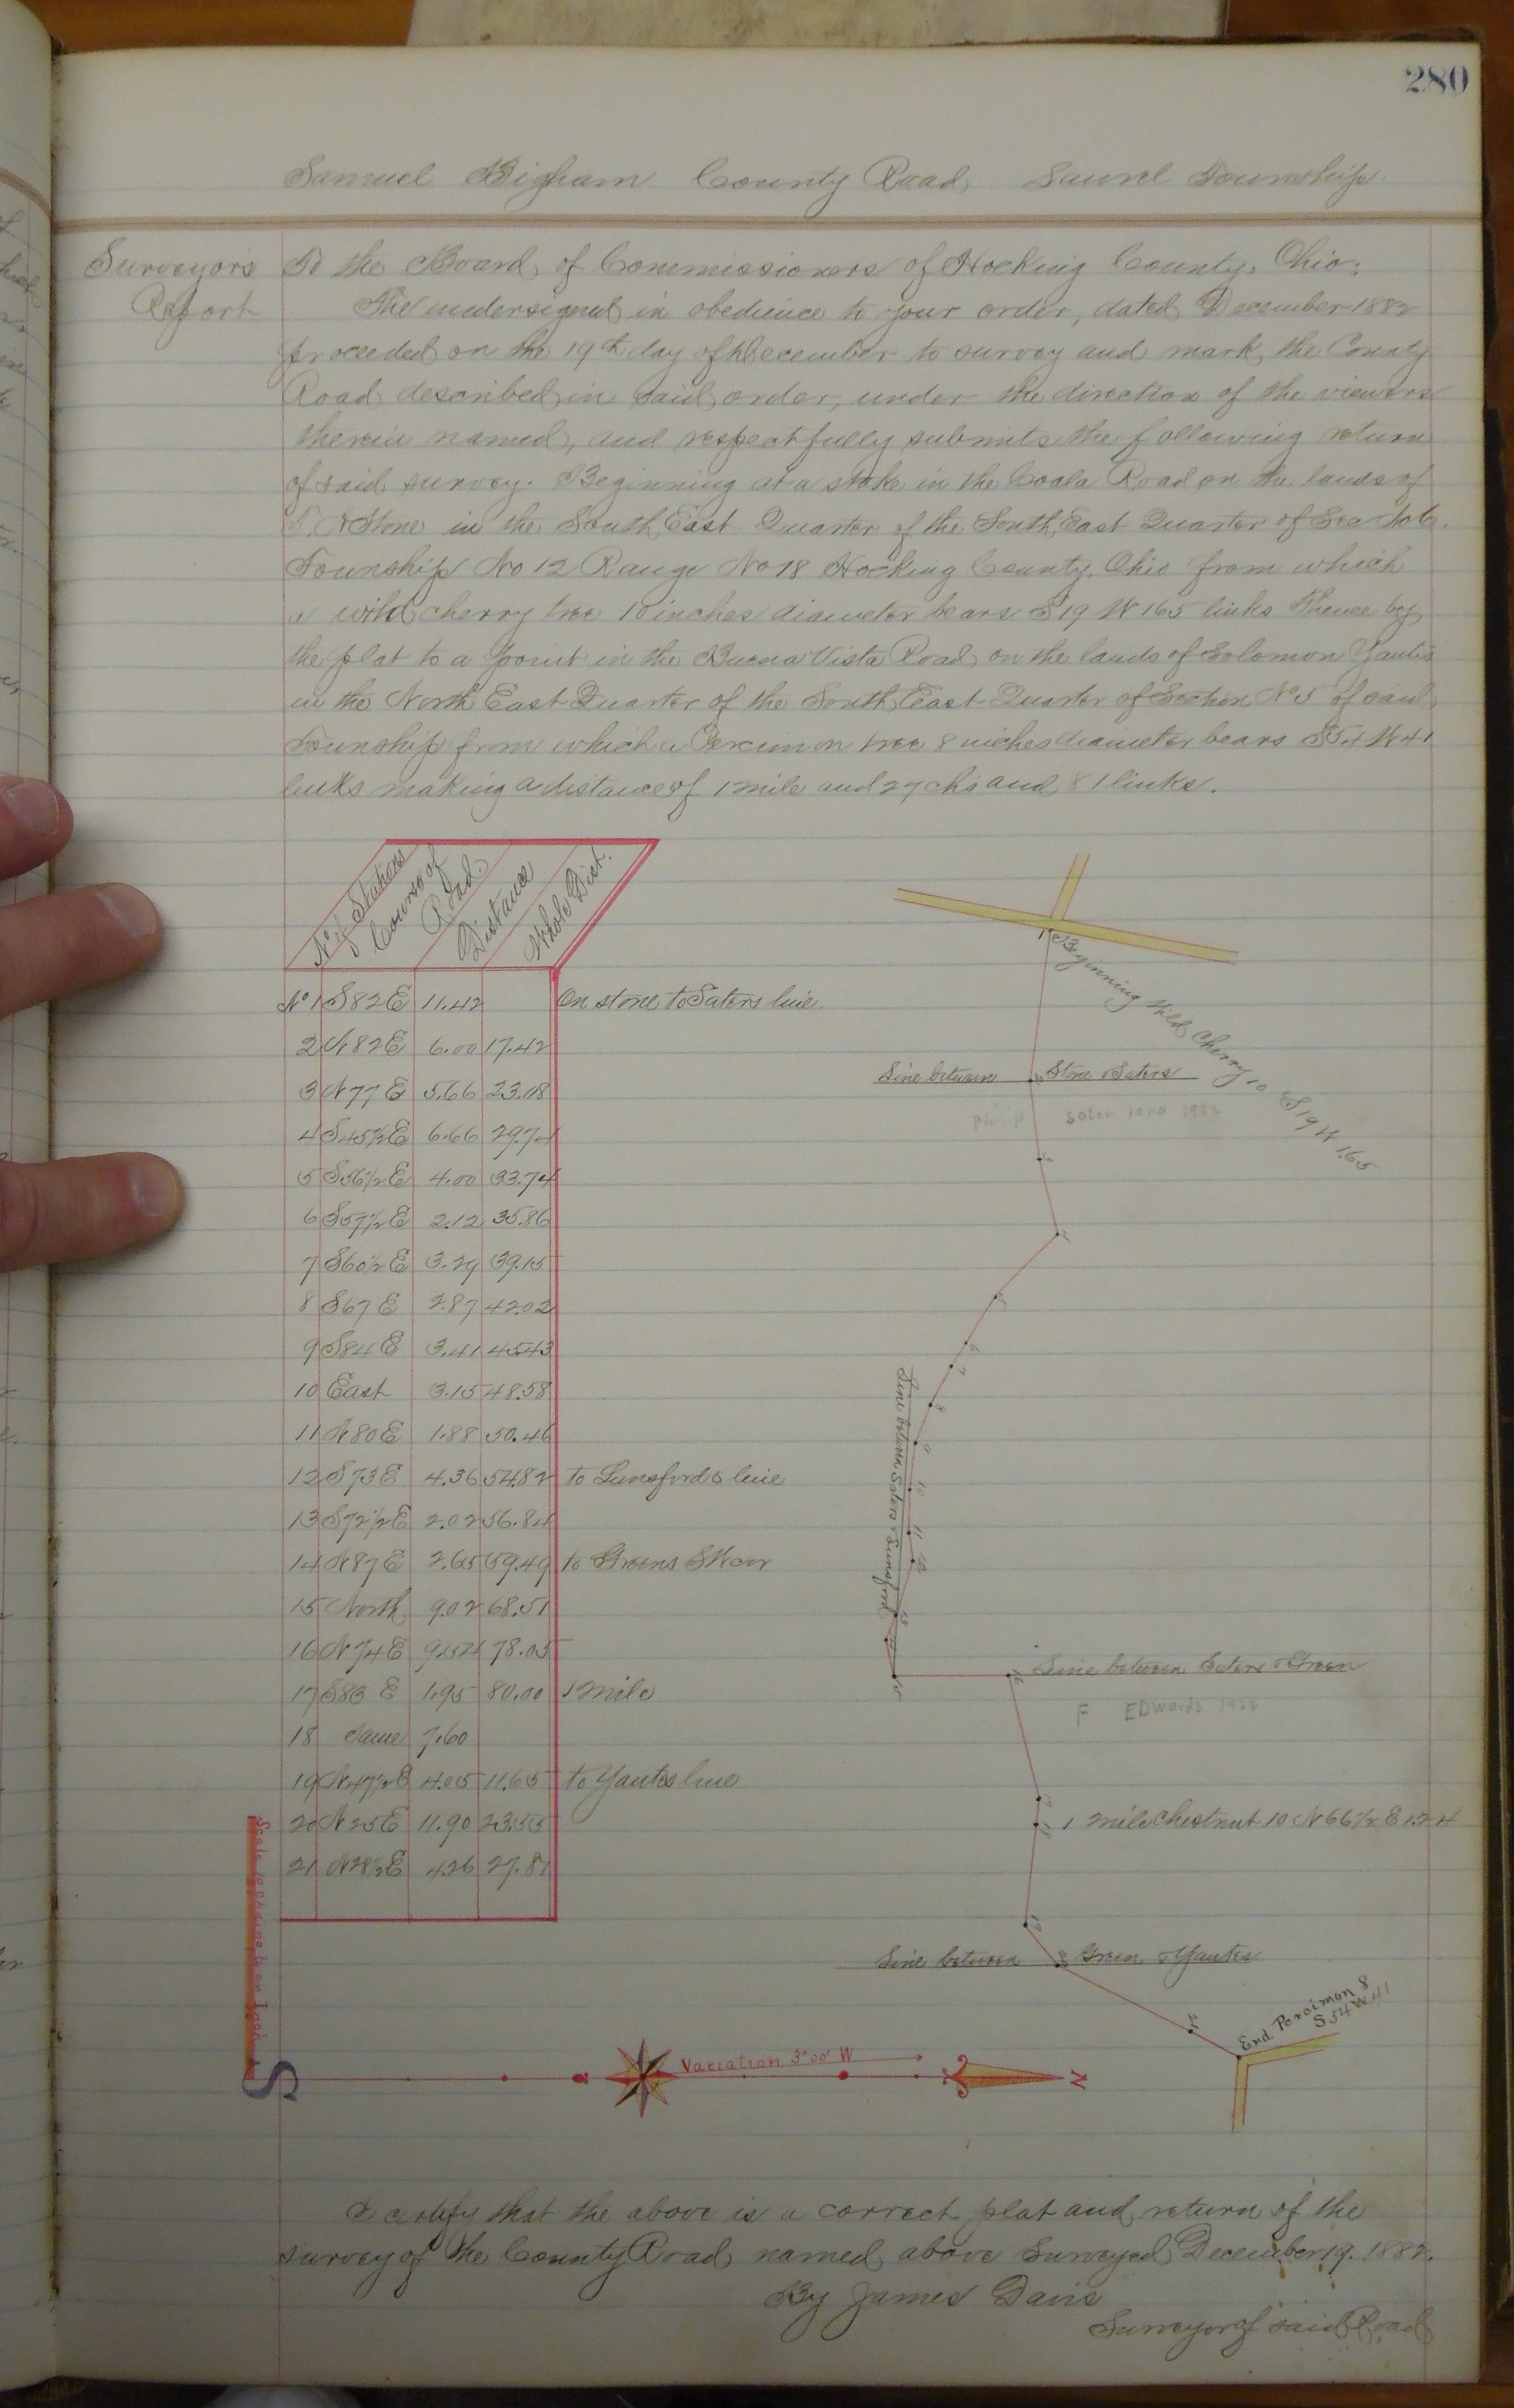 280
Samuel Bigham County Road, Laurel Township
Surveyors Report
To the Board, of Commissioners of Hocking County, Ohio:
The undersigned in obedience to your order, dated December 1882
proceeded on the 19th day of December to survey and mark, the County
Road described in said order, under the direction of the viewers
therein named, and respectfully submits the following return
of said survey. Beginning at a stake in the Road on the lands of
Stone in the South East Quarter of the South East Quarter of Sec No 6.
Township No 12 Range No 18 Hocking County, Ohio from which
a wild cherry tree 10 inches diameter bears S 19 W 165 links Thence by
the plat to a point in the Buena Vista Road, on the lands of Solomon Yantis
in the North East Quarter of the South East Quarter of Section No 5 of said
Township from which a Percimon tree 8 inches diameter bears S 54 W 41
links making a distance of 1 mile and 27 chs and 81 links.
No of Stations Course of Road. Distance Whole Dist.
No 1 S 82 E 11.42 On stone to Saters line.
2 N 82 E 6.00 17.42
3 N 77 E 5.66 23.08
4 S 45 1/2 E 6.66 29.74
5 S 56 1/2 E 4.00 33.74
6 S 57 1/2 E 2.12 35.86
7 S 60 1/2 E 3.29 39.15
8 S 67 E 2.87 42.02
9 S 84 E 3.41 45.43
10 East 3.15 48.58
11 N 80 E 1.88 50.46
12 S 73 E 4.36 54.82 to Lunsfords line
13 S 72 1/2 E 2.02 56.84
14 N 87 E 2.65 59.49 to Greens S W cor
15 North 9.02 68.51
16 N 74 E 9.54 78.05
17 S 83 E 1.95 80.00 1 mile
18 Same 7.60
19 N 47 1/2 E 4.05 11.65 to Yantis line
20 N 25 E 11.90 23.55
21 E 4.26 27.81
Beginning Wild Cherry 10 S 19 W 1.65
Line between Stone & Saters
Philip Sater land 1922
Line between Saters & Lunsford
Line between Saters & Green
F EDwards
1 mile Chestnut 10 N 66 1/2 E 1.24
Line between Green & Yantis
End Percimon 8
S 54 W 41
Scale 10 chains to an Inch
S Variation 3°00' W N
I certify that the above is a correct plat and return of the
survey of the County Road, named above Surveyed December 19. 1882.
By James Davis
Surveyor of said Road